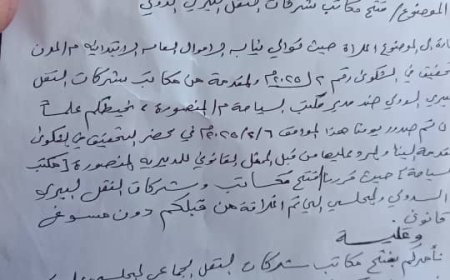 الموضوع/ فتح مكاتب شركات النقل البري الدولي
إلى الموضوع اعلاه حيث توالي نيابه الاموال العامه الابتدائيه م/عدن
تحقيق في الشكوى رقم ٢ / ٢٠٢٥م والمقدمة من مكاتب شركات النقل
البري الدولي ضد مدير مكتب السياحة م/ المنصورة ، نحيطكم علماً
تم صدور يومنا هذا الموافق ٢/٦/ ٢٠٢٥م في محضر التحقيق في الشكوى
المقدمة الينا والرد عليها من قبل الممثل القانوني للمديرية المنصورة [ مكتب
السياحة ] صدر قررنا / فتح مكاتب وشركات النقل البري
الدولي والمجلسي التي تم اغلاقة من قبلكم دون مسوغ
قانوني
وعلية
نأمركم بفتح مكاتب شركات النقل الجماعي